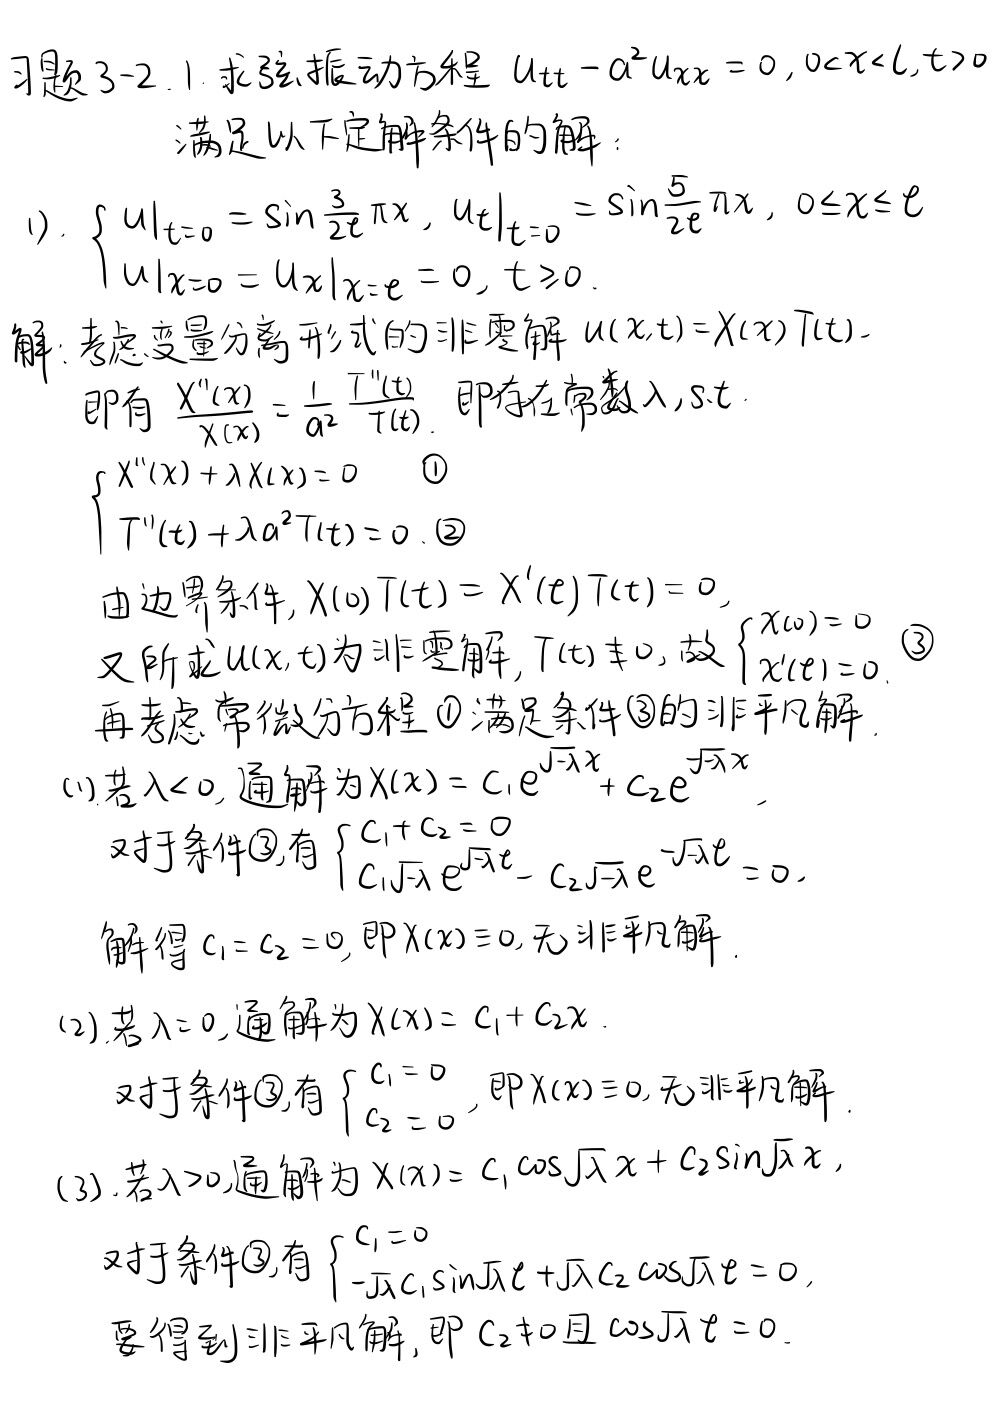 习题3-2.1.求弦振动方程 u_{tt} - a²u_{xx} = 0, 0<x<l, t>0
满足以下定解条件的解:
1). { u|_{t=0} = sin \frac{3}{2l} πx, u_t|_{t=0} = sin \frac{5}{2l} πx, 0≤x≤l
u|_{x=0} = u_x|_{x=l} = 0, t≥0.
解:考虑变量分离形式的非零解 u(x,t)=X(x)T(t).
即有 \frac{X''(x)}{X(x)} = \frac{1}{a²} \frac{T''(t)}{T(t)}. 即存在常数λ, s.t.
{ X''(x)+λX(x)=0 ①
T''(t)+λa²T(t)=0. ②
由边界条件, X(0)T(t) = X'(l)T(t) = 0,
又所求u(x,t)为非零解, T(t)≢0, 故 { X(0)=0 X'(l)=0. ③
再考虑常微分方程①满足条件③的非平凡解.
(1).若λ<0, 通解为X(x) = C_1e^{\sqrt{-λ}x} + C_2e^{-\sqrt{-λ}x},
又对于条件③,有 { C_1+C_2=0
C_1\sqrt{-λ}e^{\sqrt{-λ}l} - C_2\sqrt{-λ}e^{-\sqrt{-λ}l} = 0,
解得 C_1=C_2=0, 即X(x)≡0, 无非平凡解.
(2).若λ=0, 通解为X(x) = C_1+C_2x.
又对于条件③,有 { C_1=0 C_2=0, 即X(x)≡0, 无非平凡解.
(3).若λ>0, 通解为 X(x) = C_1cos\sqrt{λ}x + C_2sin\sqrt{λ}x,
又对于条件③,有 { C_1=0
-\sqrt{λ}C_1sin\sqrt{λ}l + \sqrt{λ}C_2cos\sqrt{λ}l = 0,
要得到非平凡解, 即 C_2≠0且 cos\sqrt{λ}l = 0.